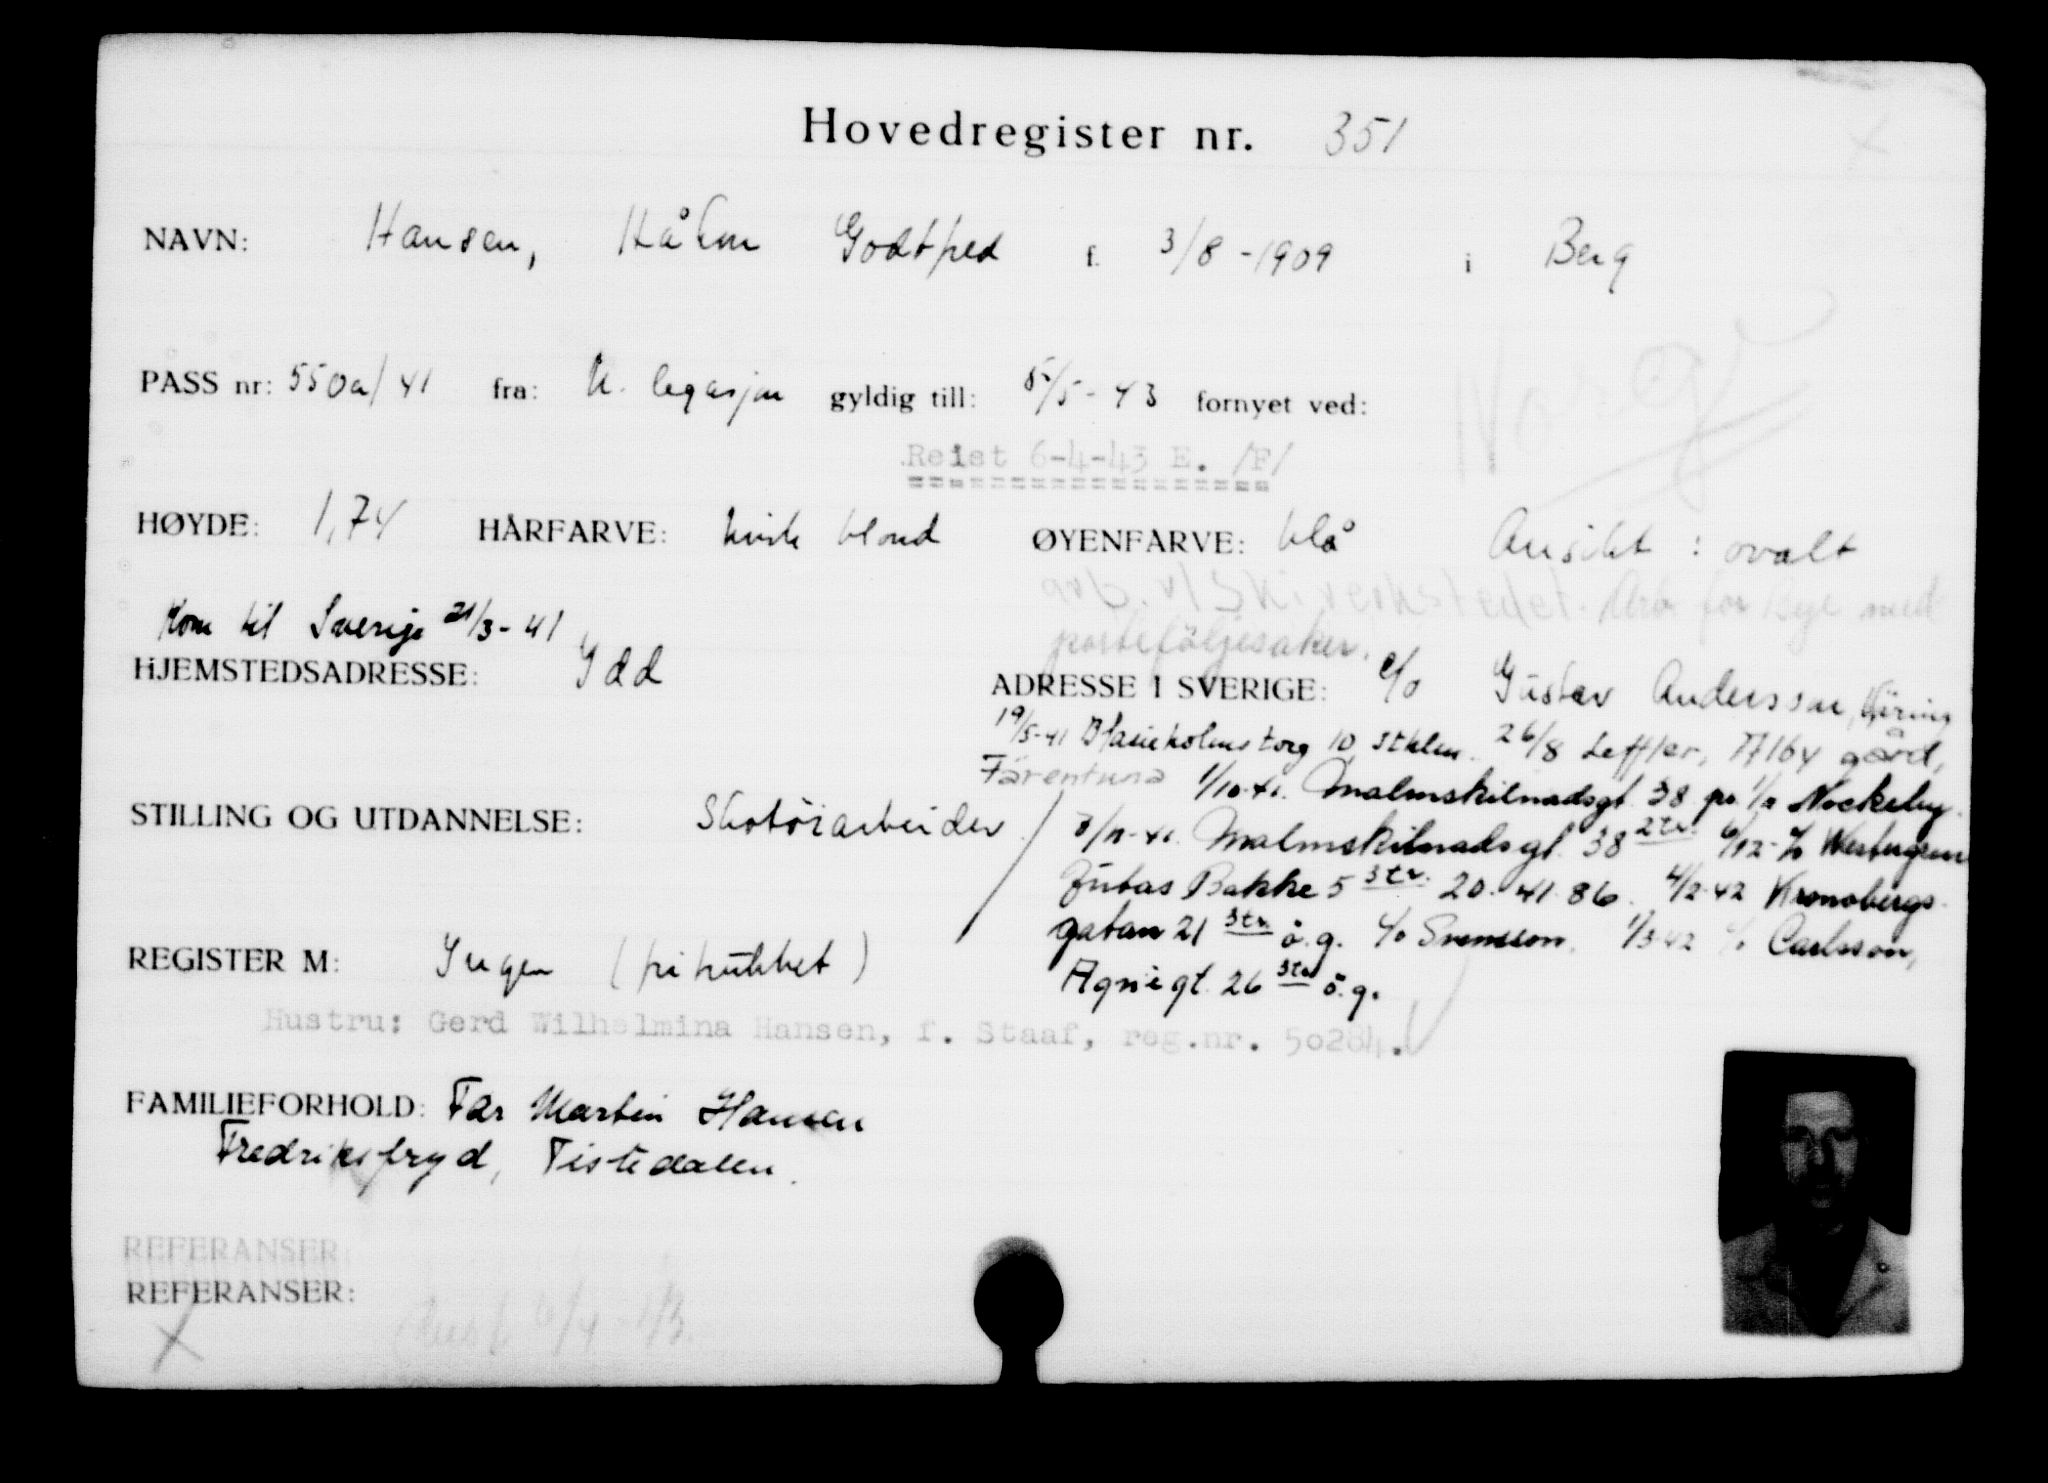 Hovedregister nr. 351
NAVN: Hansen, Håkon Godtfred f. 3/8 - 1909 i Berg
PASS nr: 550a/41 fra: N. legasjon gyldig till: 5/5 - 43 fornyet ved:
Norge
Reist 6-4-43 E. /F/
HØYDE: 1,74 HÅRFARVE: mørk blond ØYENFARVE: blå Ansikt : ovalt
arb. v/ Skiverkstedet. Arb. for Bye med
portefäljesaker.
Kom til Sverige 21/3 - 41
HJEMSTEDSADRESSE: Idd
ADRESSE I SVERIGE: c/o Gustav Andersson, Häring
19/5-41 Blasieholmstorg 10, Sthlm. 26/8 Leffler, gård,
Färentuna 1/10-41. Malmskilnadsgt. 38 Nockeby.
STILLING OG UTDANNELSE: Skotöiarbeider
3/11-41. Malmskilnadsgt. 38 2 tr. 6/12 - c/o Westergren
Jutas Bakke 5 3 tr. 20.41.86. 4/2-42 Kronobergs-
gatan 21 3 tr ö.g. c/o Svensson. 1/3-42 c/o Carlsson,
Agnegt. 26 3 tr ö.g.
REGISTER M: Ingen
Hustru: Gerd Wilhelmina Hansen, f. Staaf, reg.nr. 50284.
FAMILIEFORHOLD: Far Martin Hansen
Fredriksfryd, Tistedalen.
REFERANSER
REFERANSER:
6/4 - 43.